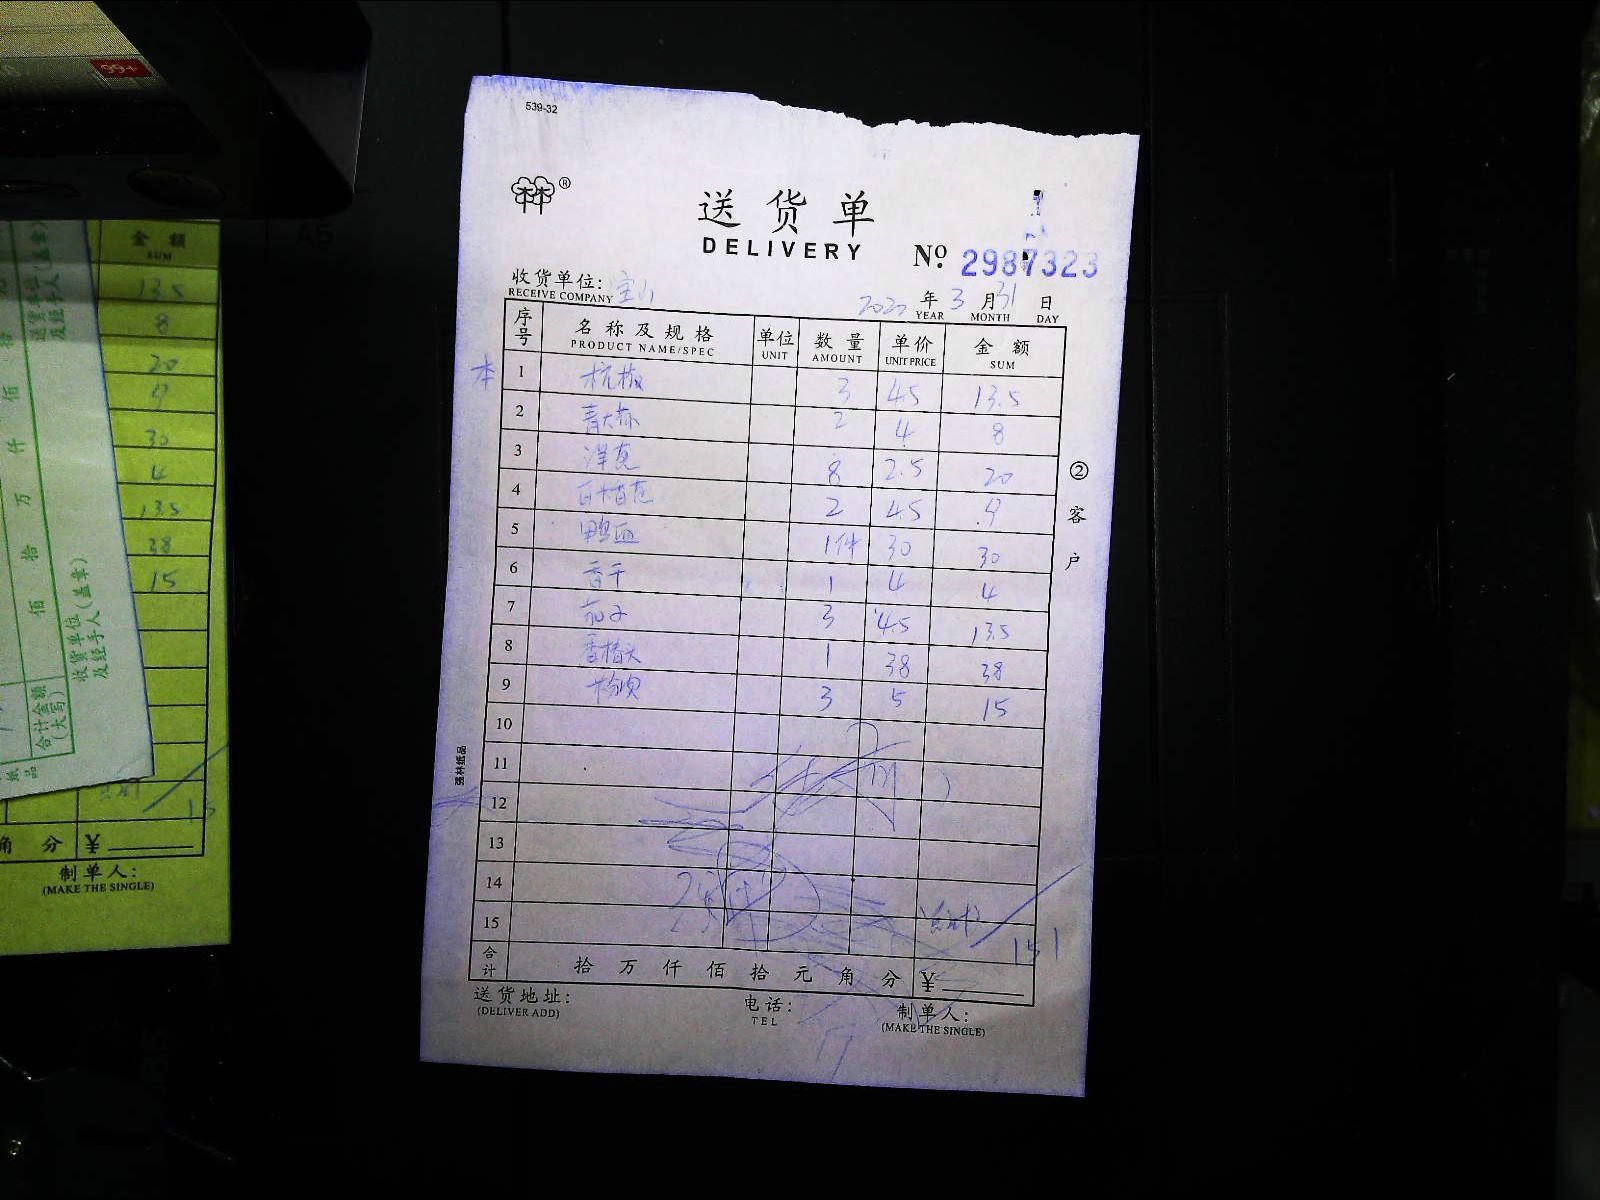 99+
539-32
®
送货单
DELIVERY
No. 2987323
收货单位: 宝山
RECEIVE COMPANY
2020 年 3 月 31 日
YEAR MONTH DAY
序号 名称及规格 单位 数量 单价 金额
PRODUCT NAME/SPEC UNIT AMOUNT UNIT PRICE SUM
本 1 杭椒 3 4.5 13.5
2 青大 2 4 8
3 洋葱 8 2.5 20
4 2 4.5 9
5 鸭血 1件 30 30
6 香干 1 4 4
7 茄子 3 4.5 13.5
8 1 38 38
9 3 5 15
10
11
12
13
14
15 151
合计 拾 万 仟 佰 拾 元 角 分 ¥
送货地址: 电话: 制单人:
(DELIVER ADD) TEL (MAKE THE SINGLE)
②客户
强林纸品
金额
SUM
13.5
8
20
9
30
4
13.5
38
15
角 分 ¥
制单人:
(MAKE THE SINGLE)
送货单位(盖章)
及经手人
佰 拾 万 仟 佰
收货单位
及经手人(盖章)
合计金额
(大写)